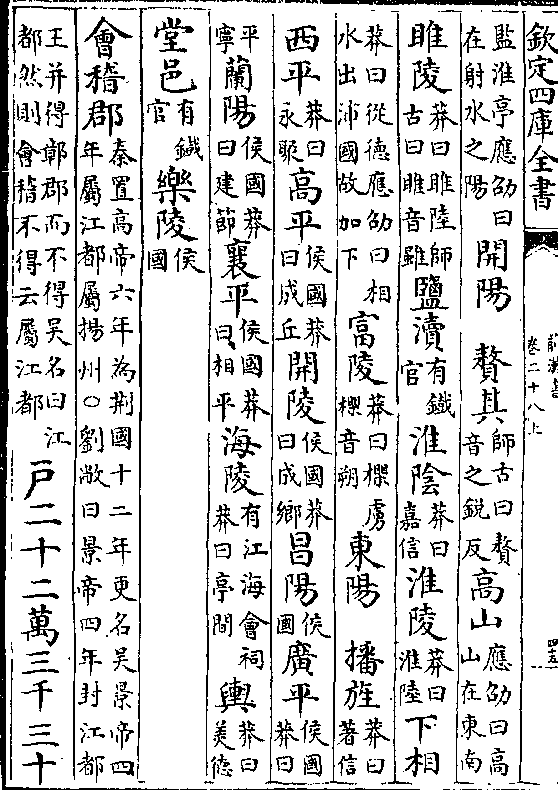 欽定四庫全書
前漢書
卷二十八上
四十五
監淮亭應劭曰在射水之陽 開陽 贅其 師古曰贅音之銳反 高山 應劭曰高山在東南
睢陵 莽曰睢陸師古曰睢音雖 鹽瀆 有鐵官 淮陰 莽曰嘉信 淮陵 莽曰淮陸 下相
莽曰從德應劭曰相水出沛國故加下 富陵 莽曰㮶虜㮶音朔 東陽 播旌 莽曰著信
西平 莽曰永聚 高平 侯國莽曰成丘 開陵 侯國莽曰成鄉 昌陽 侯國 廣平 侯國莽曰
平寧 蘭陽 侯國莽曰建節 襄平 侯國莽曰相平 海陵 有江海會祠莽曰亭間 輿 莽曰美德
堂邑 有鐵官 樂陵 侯國
會稽郡 秦置高帝六年為荆國十二年更名吳景帝四年屬江都屬揚州○劉敞曰景帝四年封江都
王并得鄣郡而不得吳名曰江都然則會稽不得云屬江都 戶二十二萬三千三十